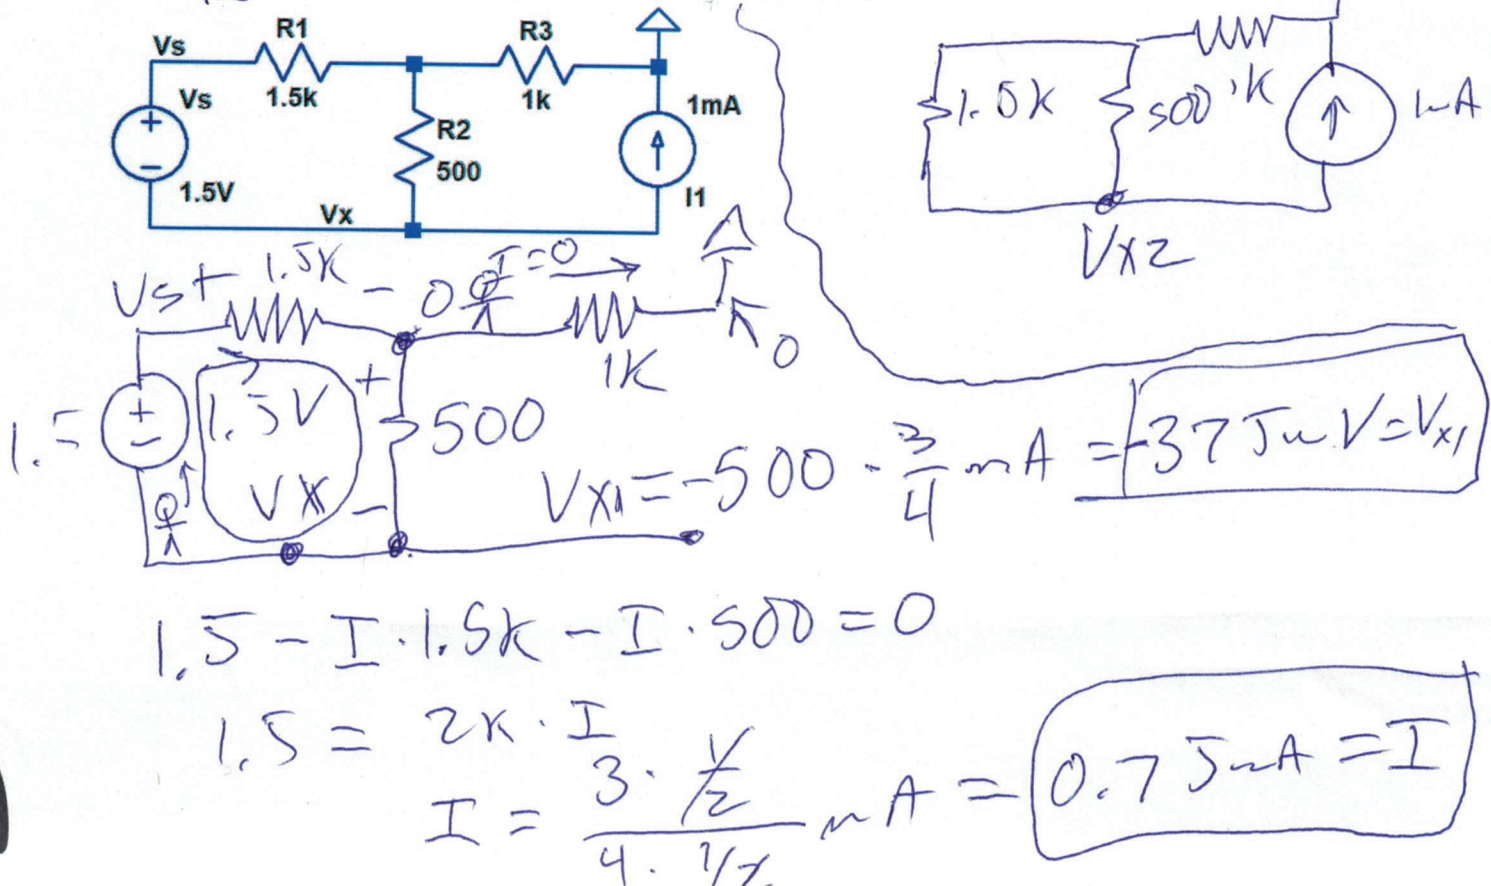 R1
R3
Vs
Vs
1.5k
1k
1mA
R2
500
1.5V
Vx
I1
1.5k
500
1K
1mA
Vx2
Vs + 1.5K - 0 I=0
0
1K
1.5
1.5V
+
500
Vx -
Vx1 = -500 · 3/4 mA = -375mV = Vx1
1.5 - I·1.5k - I·500 = 0
1.5 = 2K·I
I = 3·1/2 / 4·1/2 mA = 0.75mA = I